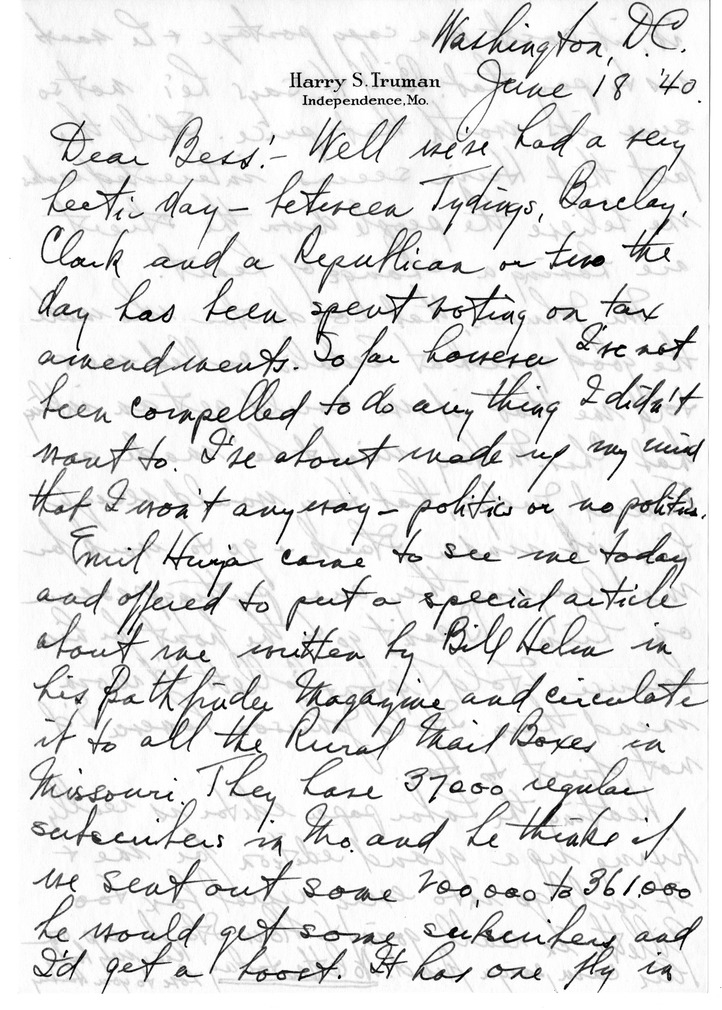 Washington, D.C.
Harry S. Truman
Independence, Mo.
June 18 '40.
Dear Bess:- Well we've had a very
hectic day - between Tydings, Barclay,
Clark and a Republican or two the
day has been spent voting on tax
amendments. So far however I've not
been compelled to do anything I didn't
want to. I've about made up my mind
that I won't anyway - politics or no politics.
Emil Hurja came to see me today
and offered to put a special article
about me written by Bill Helm in
his Pathfinder Magazine and circulate
it to all the Rural Mail Boxes in
Missouri. They have 37000 regular
subscribers in Mo. and he thinks if
we sent out some 200,000 to 361,000
he would get some subscribers and
I'd get a boost. It has one fly in